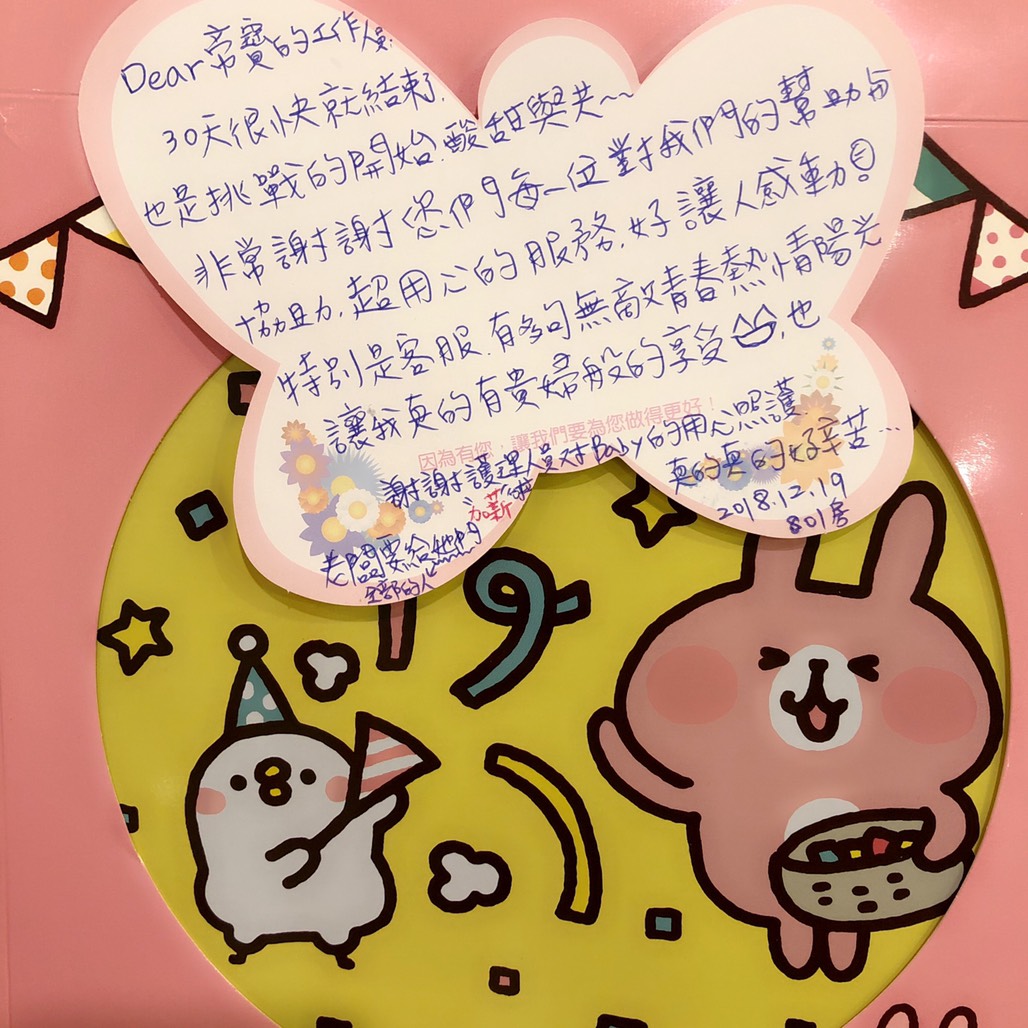 Dear 帝寶的工作人員:
30天很快就結束了,
也是挑戰的開始,酸甜與共~~
非常謝謝您們每一位對我們的幫助與
協助,超用心的服務,好讓人感動!
特別是客服,有夠無敵青春熱情陽光
讓我真的有貴婦般的享受,也
因為有您,讓我們要為您做得更好!
謝謝護理人員對Baby的用心照護
真的真的好辛苦...
老闆要給她們加薪啦
全部的人
2018.12.19
801房